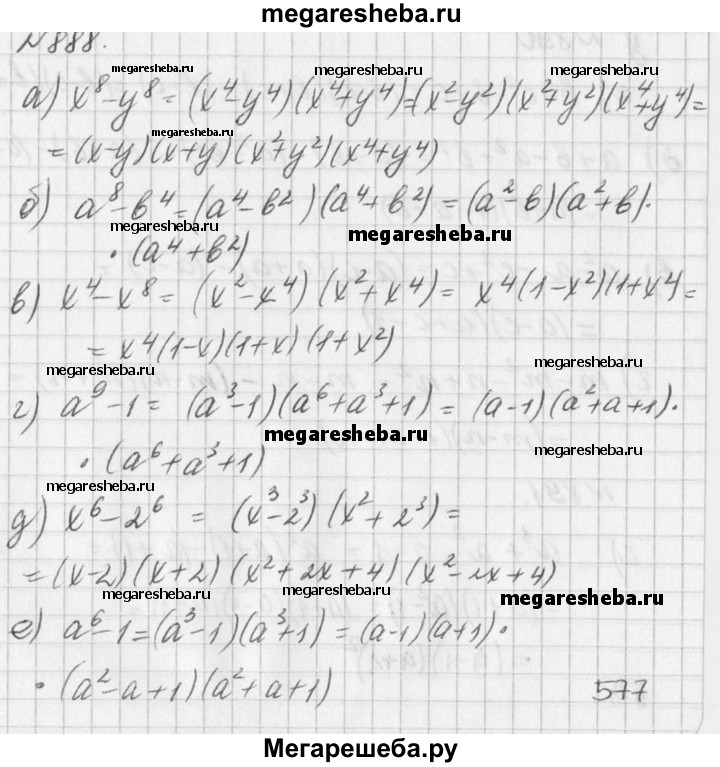 megaresheba.ru
N888.
megaresheba.ru megaresheba.ru megaresheba.ru
а) x⁸-y⁸=(x⁴-y⁴)(x⁴+y⁴)=(x²-y²)(x²+y²)(x⁴+y⁴)=
megaresheba.ru
=(x-y)(x+y)(x²+y²)(x⁴+y⁴)
б) a⁸-b⁴=(a⁴-b²)(a⁴+b²)=(a²-b)(a²+b)·
megaresheba.ru
·(a⁴+b²)
в) x⁴-x⁸=(x²-x⁴)(x²+x⁴)=x⁴(1-x²)(1+x⁴)=
=x⁴(1-x)(1+x)(1+x²)
megaresheba.ru megaresheba.ru
г) a⁹-1=(a³-1)(a⁶+a³+1)=(a-1)(a²+a+1)·
megaresheba.ru
·(a⁶+a³+1)
megaresheba.ru megaresheba.ru
д) x⁶-2⁶=(x³-2³)(x²+2³)=
=(x-2)(x+2)(x²+2x+4)(x²-2x+4)
megaresheba.ru megaresheba.ru megaresheba.ru
е) a⁶-1=(a³-1)(a³+1)=(a-1)(a+1)·
·(a²-a+1)(a²+a+1)
577
Мегарешеба.ру